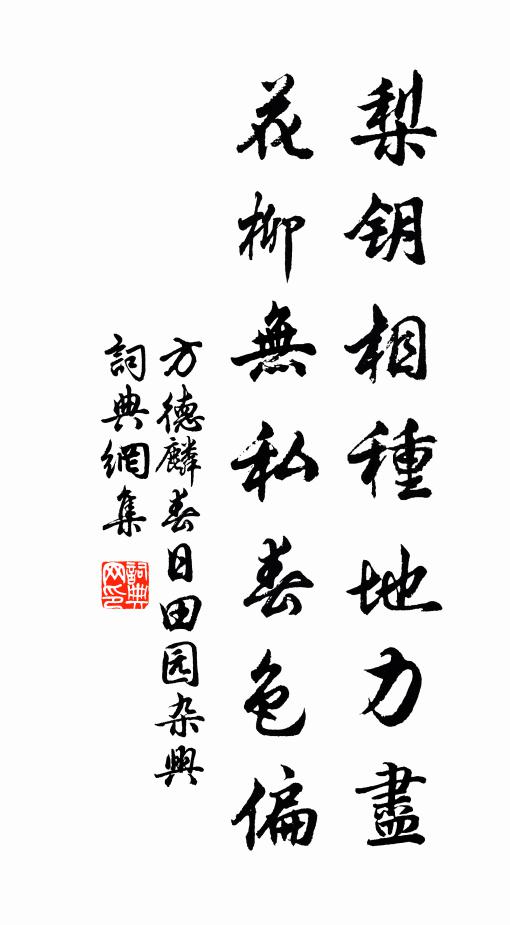 梨钥相種地力盡
花柳無私春色偏
方德麟春日田园杂興
詞典網集
詞典
网印